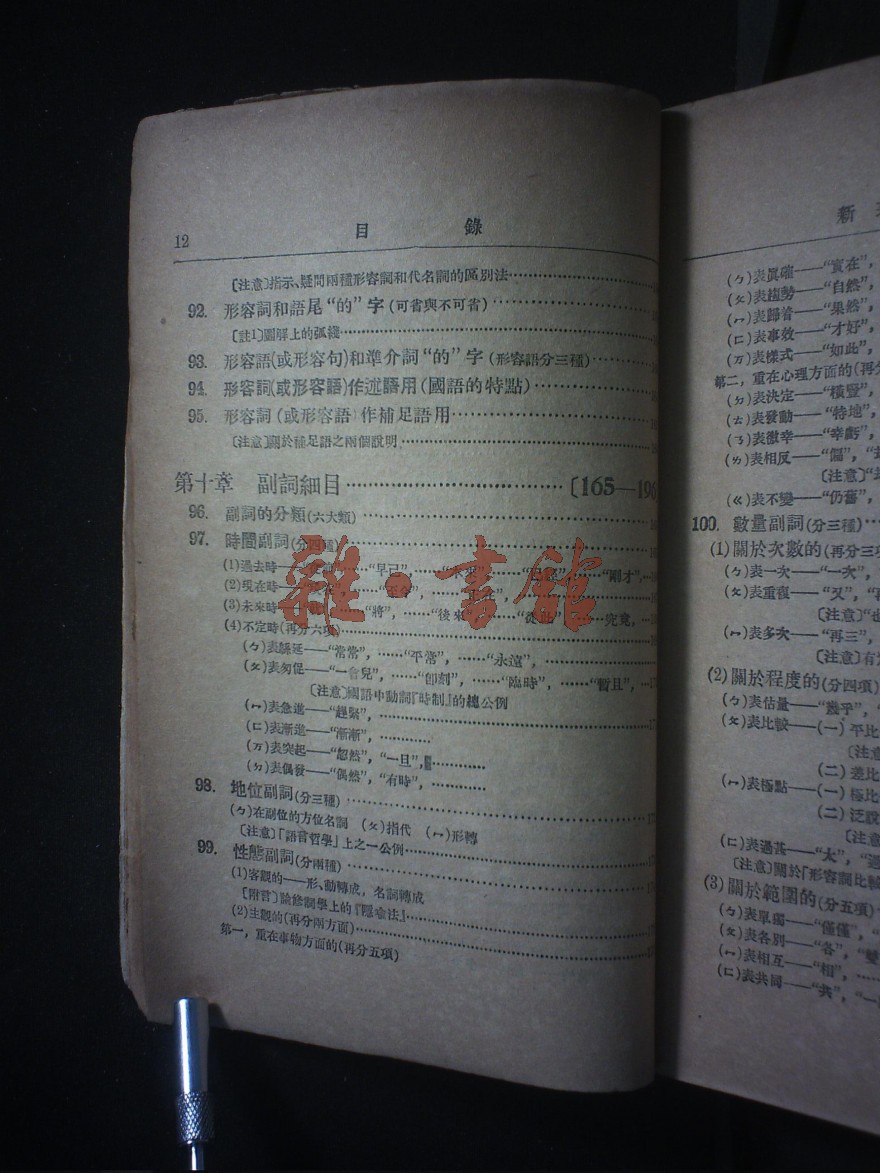 12 目 錄
〔注意〕指示、疑問兩種形容詞和代名詞的區別法
92. 形容詞和語尾“的”字(可省與不可省)
〔註1〕圖解上的弧綫
93. 形容語(或形容句)和準介詞“的”字(形容語分三種)
94. 形容詞(或形容語)作述語用(國語的特點)
95. 形容詞(或形容語)作補足語用
〔注意〕關於補足語之兩個說明
第十章 副詞細目〔165—196
96. 副詞的分類(六大類)
97. 時間副詞(分四種)
(1)過去時—— ……“早已”, …… …… ……“剛才”,
(2)現在時——
(3)未來時—— “將”, ……“後來” ……“從此” ……究竟,
(4)不定時(再分六項)
(ㄅ)表緜延——“常常”, ……“平常”, ……“永遠”,
(ㄆ)表匆促——“一會兒”, ……“卽刻”, ……“臨時”, ……“暫且”,
〔注意〕國語中動詞『時制』的總公例
(ㄇ)表急進——“趕緊”,
(ㄈ)表漸進——“漸漸”,
(万)表突起——“忽然”, “一旦”,
(ㄉ)表偶發——“偶然”, “有時”,
98. 地位副詞(分三種)
(ㄅ)在副位的方位名詞 (ㄆ)指代 (ㄇ)形轉
〔注意〕「語言哲學」上之一公例
99. 性態副詞(分兩種)
(1)客觀的——形、動轉成，名詞轉成
〔附言〕論修詞學上的『隱喻法』
(2)主觀的(再分兩方面)
第一，重在事物方面的(再分五項)
新
(ㄅ)表眞確——“實在”,
(ㄆ)表趨勢——“自然”,
(ㄇ)表歸着——“果然”,
(ㄈ)表事效——“才好”,
(万)表樣式——“如此”,
第二，重在心理方面的(再分
(ㄉ)表決定——“橫豎”,
(ㄊ)表發動——“特地”,
(ㄋ)表徼幸——“幸虧”,
(ㄌ)表相反——“偏”,
〔注意〕
(ㄍ)表不變——“仍舊”,
100. 數量副詞(分三種)
(1)關於次數的(再分三項
(ㄅ)表一次——“一次”,
(ㄆ)表重複——“又”,
〔注意〕“也
(ㄇ)表多次——“再三”,
〔注意〕有
(2)關於程度的(分四項)
(ㄅ)表估量——“幾乎”,
(ㄆ)表比較——(一)平比
〔注意
(二)差比
(ㄇ)表極點——(一)極比
(二)泛設
〔注意
(ㄈ)表過甚——“太”,
〔注意〕關於「形容詞比較
(3)關於範圍的(分五項)
(ㄅ)表單獨——“僅僅”,
(ㄆ)表各別——“各”,
(ㄇ)表相互——“相”,
(ㄈ)表共同——“共”, “一
雜·書館